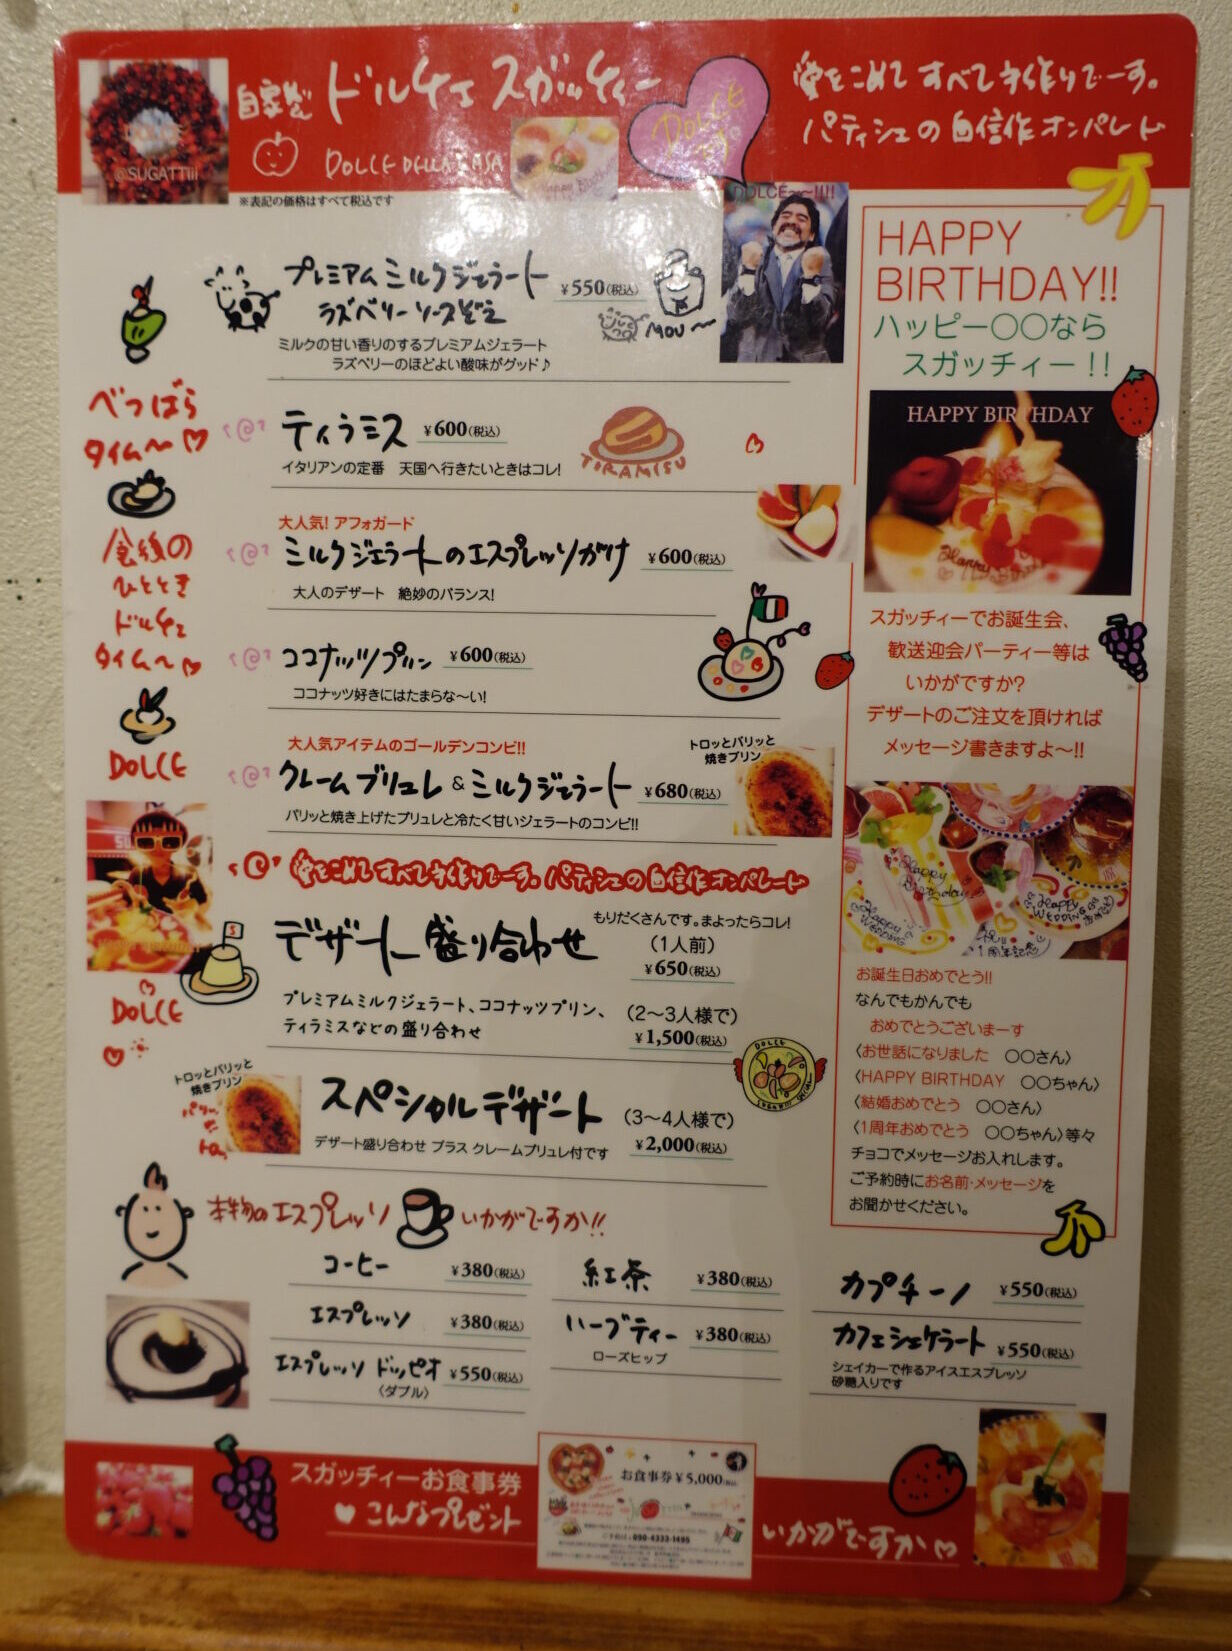 DOLCE
@SUGATTIii
自家製 ドルチェ スガッティー
DOLCE DELLA CASA
Happy Birth
DOLCE
※表記の価格はすべて税込です
愛をこめて すべて手作りでーす。
パティシエの自信作オンパレード
DOLCE~~!!!!
プレミアムミルクジェラート ¥550(税込)
ラズベリーソースぞえ
MOU~
ミルクの甘い香りのするプレミアムジェラート
ラズベリーのほどよい酸味がグッド♪
べつばら
タイム〜♡
ティラミス ¥600(税込)
イタリアンの定番 天国へ行きたいときはコレ!
TIRAMISU
大人気! アフォガード
ミルクジェラートのエスプレッソがけ ¥600(税込)
大人のデザート 絶妙のバランス!
食後の
ひととき
ドルチェ
タイム〜♡
ココナッツプリン ¥600(税込)
ココナッツ好きにはたまらな〜い!
DOLCE
大人気アイテムのゴールデンコンビ!!
クレームブリュレ&ミルクジェラート ¥680(税込)
パリッと焼き上げたブリュレと冷たく甘いジェラートのコンビ!!
トロッとパリッと
焼きプリン
愛をこめて すべて手作りでーす。パティシエの自信作オンパレード
デザート盛り合わせ
もりだくさんです。まよったらコレ!
(1人前)
¥650(税込)
プレミアムミルクジェラート、ココナッツプリン、
ティラミスなどの盛り合わせ
(2〜3人様で)
¥1,500(税込)
DOLCE
DOLCE
トロッとパリッと
焼きプリン
スペシャルデザート
(3〜4人様で)
¥2,000(税込)
デザート盛り合わせ プラス クレームブリュレ付です
本物のエスプレッソ いかがですか!!
コーヒー ¥380(税込)
エスプレッソ ¥380(税込)
エスプレッソ ドッピオ ¥550(税込)
〈ダブル〉
紅茶 ¥380(税込)
ハーブティー ¥380(税込)
ローズヒップ
カプチーノ ¥550(税込)
カフェシェケラート ¥550(税込)
シェイカーで作るアイスエスプレッソ
砂糖入りです
HAPPY
BIRTHDAY!!
ハッピー〇〇なら
スガッチィー!!
HAPPY BIRTHDAY
Happy
スガッチィーでお誕生会、
歓送迎会パーティー等は
いかがですか?
デザートのご注文を頂ければ
メッセージ書きますよ〜!!
Happy
Birthday
Happy
WEDDING
Happy
WEDDING
祝
1周年記念
お誕生日おめでとう!!
なんでもかんでも
おめでとうございまーす
〈お世話になりました 〇〇さん〉
〈HAPPY BIRTHDAY 〇〇ちゃん〉
〈結婚おめでとう 〇〇さん〉
〈1周年おめでとう 〇〇ちゃん〉等々
チョコでメッセージお入れします。
ご予約時にお名前・メッセージを
お聞かせください。
スガッチィーお食事券
♥こんなプレゼント
お食事券¥5,000
090-4333-1495
いかがですか♡